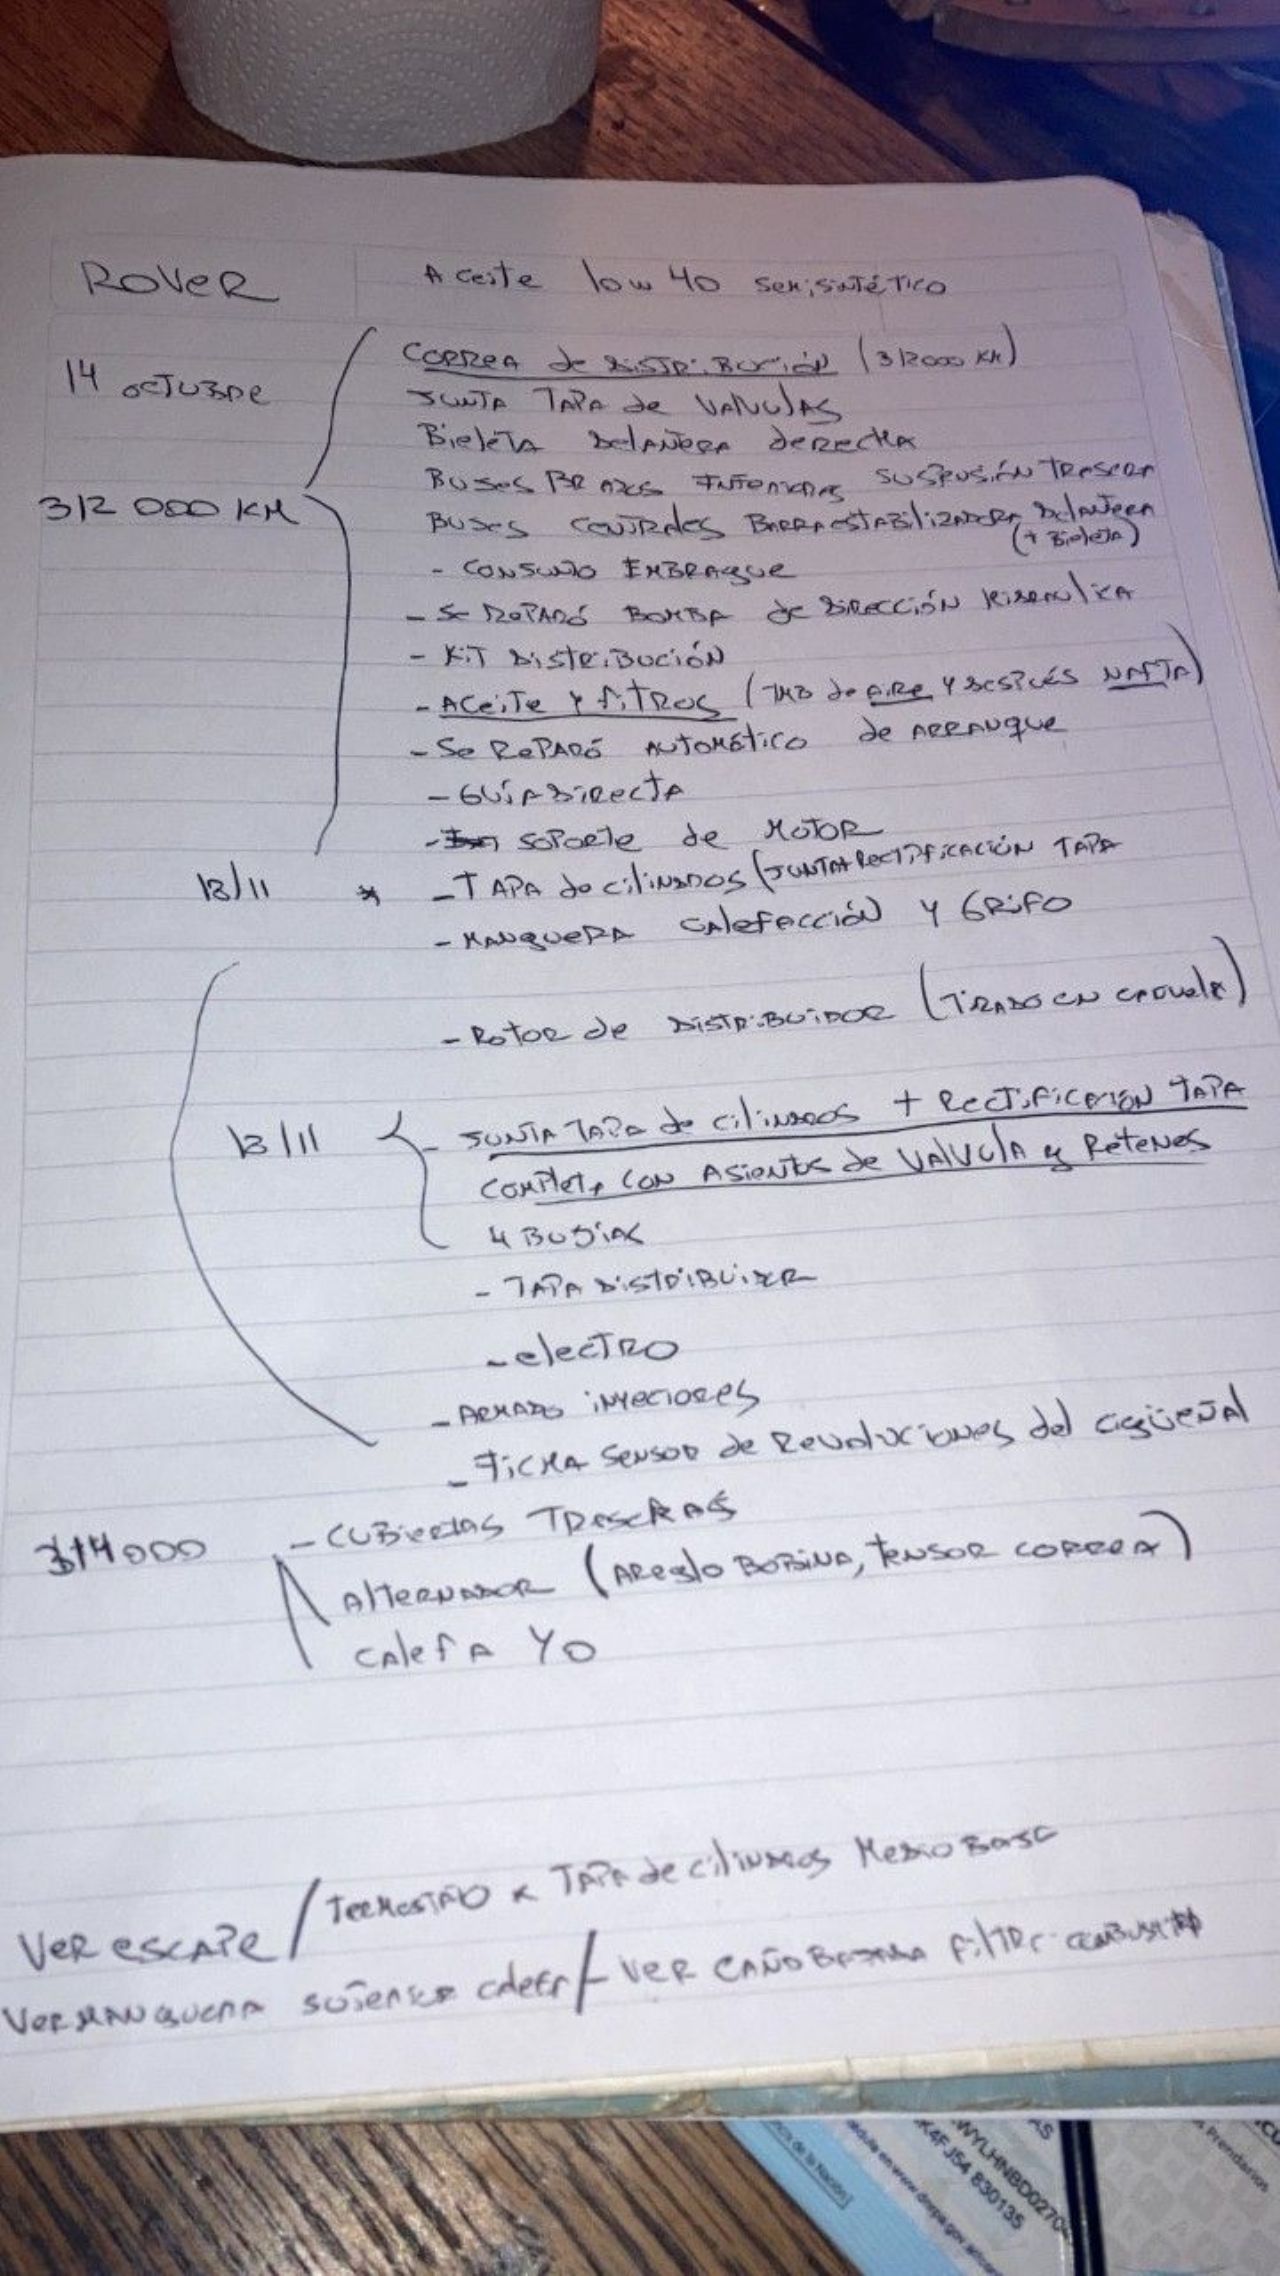 ROVER
Aceite 10w40 semisintético
14 octubre
Correa de distribución (312000 KM)
Junta tapa de valvulas
Bieleta delantera derecha
Bujes brazos inferiores suspensión trasera
312 000 KM
Bujes centrales barra estabilizadora delantera
(+ Bieleta)
- Consumo embrague
- Se reparó bomba de dirección hidraulica
- Kit distribución
- Aceite y filtros (tmb de aire y después nafta)
- Se reparó automático de arranque
- Guía directa
- soporte de motor
13/11 * - Tapa de cilindros (junta + rectificación tapa
- Manguera calefacción y grifo
- Rotor de distribuidor (tirado en cazuela)
13/11 - Junta tapa de cilindros + rectificación tapa
completa con asientos de valvula y retenes
4 bujías
- Tapa distribuidor
- electro
- Armado inyectores
- Ficha sensor de revoluciones del cigüeñal
314000 - Cubiertas traseras
Alternador (Areglo bobina, tensor correa)
Calefa yo
Ver escape / Termostato x tapa de cilindros medio
Ver manguera / Ver caño filtro
WYLHNBD0270
K4FJ54 830135